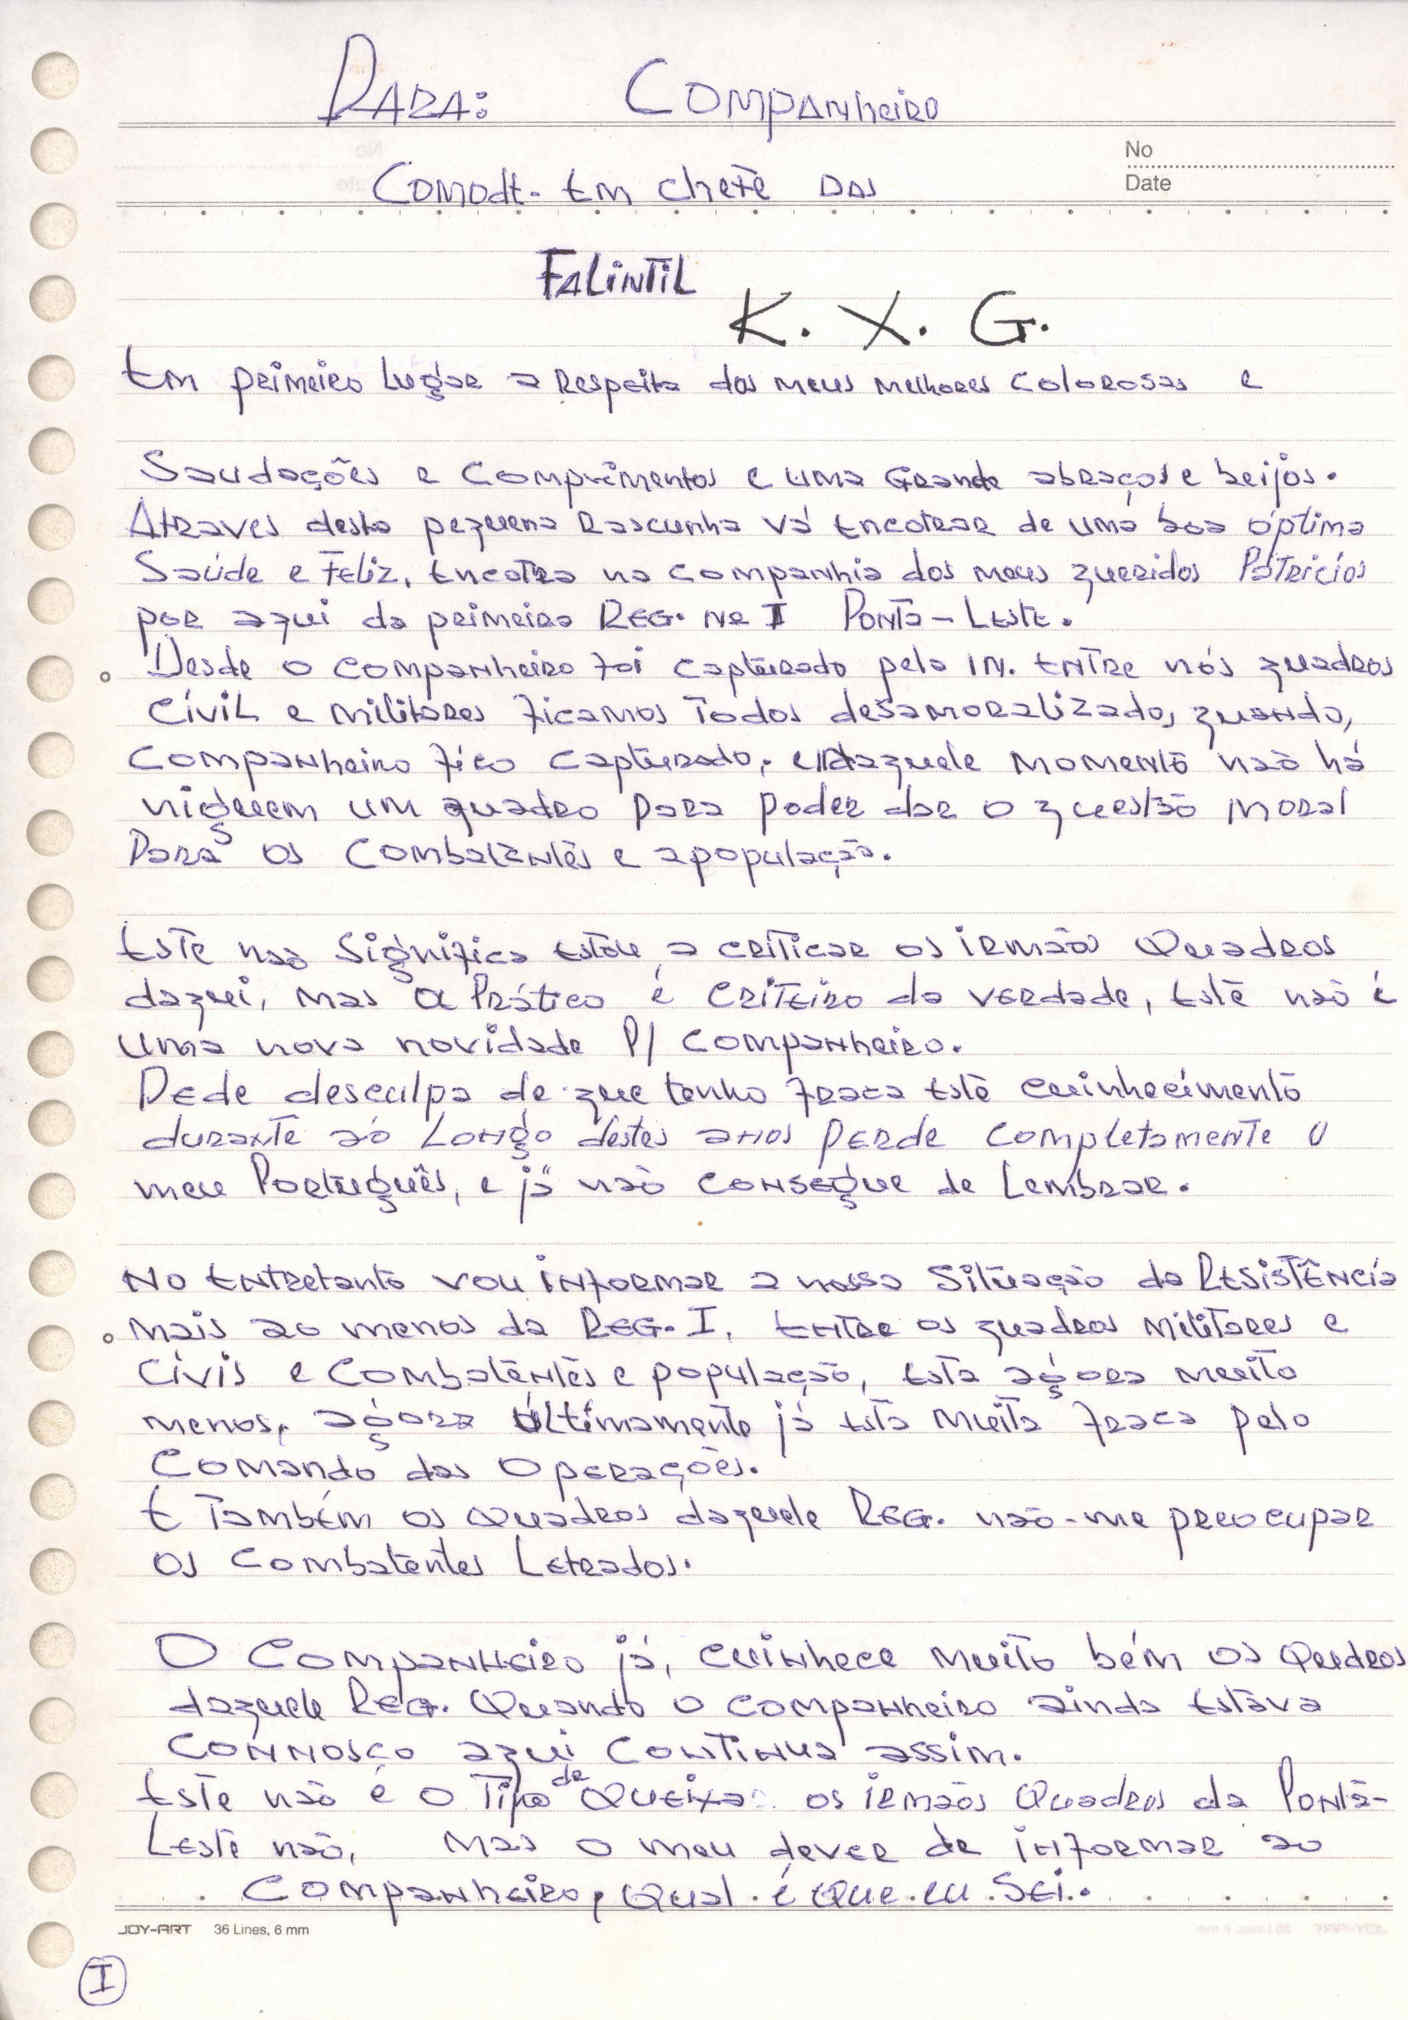 PARA: Companheiro
No
Comodt. Em chefe das
Date
Falintil
K. X. G.
Em primeiro lugar a respeito dos meus melhores colorosas e
Saudações e comprimentos e uma Grande abraços e beijos.
Atraves desta pequena Rascunha vá Encotrar de uma boa óptima
Saúde e Feliz, Encotra na companhia dos meus queridos Pátricios
por aqui da primeira REG. nº I Ponta-Leste.
Desde o companheiro foi capturado pelo IN. Entre nós quadros
civil e militares ficamos todos desamoralizado, quando,
companheiro fico capturado. daquele momento não há
niguem um quadro para poder dar o questão moral
Para os combatentes e a população.
Este não significa Estou a criticar os irmãos Quadros
daqui, mas a Prático é criteiro da verdade, Este não é
uma nova novidade P/ companheiro.
Pede desculpa de que tenho fraca Este cuinhecimento
durante ao Longo destes anos perde completamente o
meu Português, e já não consegue de Lembrar.
No Entretanto vou informar a nossa situação da Resistência
mais ao menos da REG. I, Entre os quadros militares e
civis e combatentes e população, Esta agora muito
menos, agora últimamente já Esta muita fraca pelo
Comando das Operações.
E também os Quadros daquele REG. não-me preocupar
os combatentes Letrados.
O Companheiro já, cuinhece muito bém os Qudros
daquele REG. Quando o companheiro ainda Estava
connosco aqui continua assim.
Este não é o Tipo de Queixa os irmãos Quadros da Ponta-
Leste não, mas o meu dever de informar ao
Companheiro, Qual é que eu SEi.
JOY-ART 36 Lines, 6 mm
I